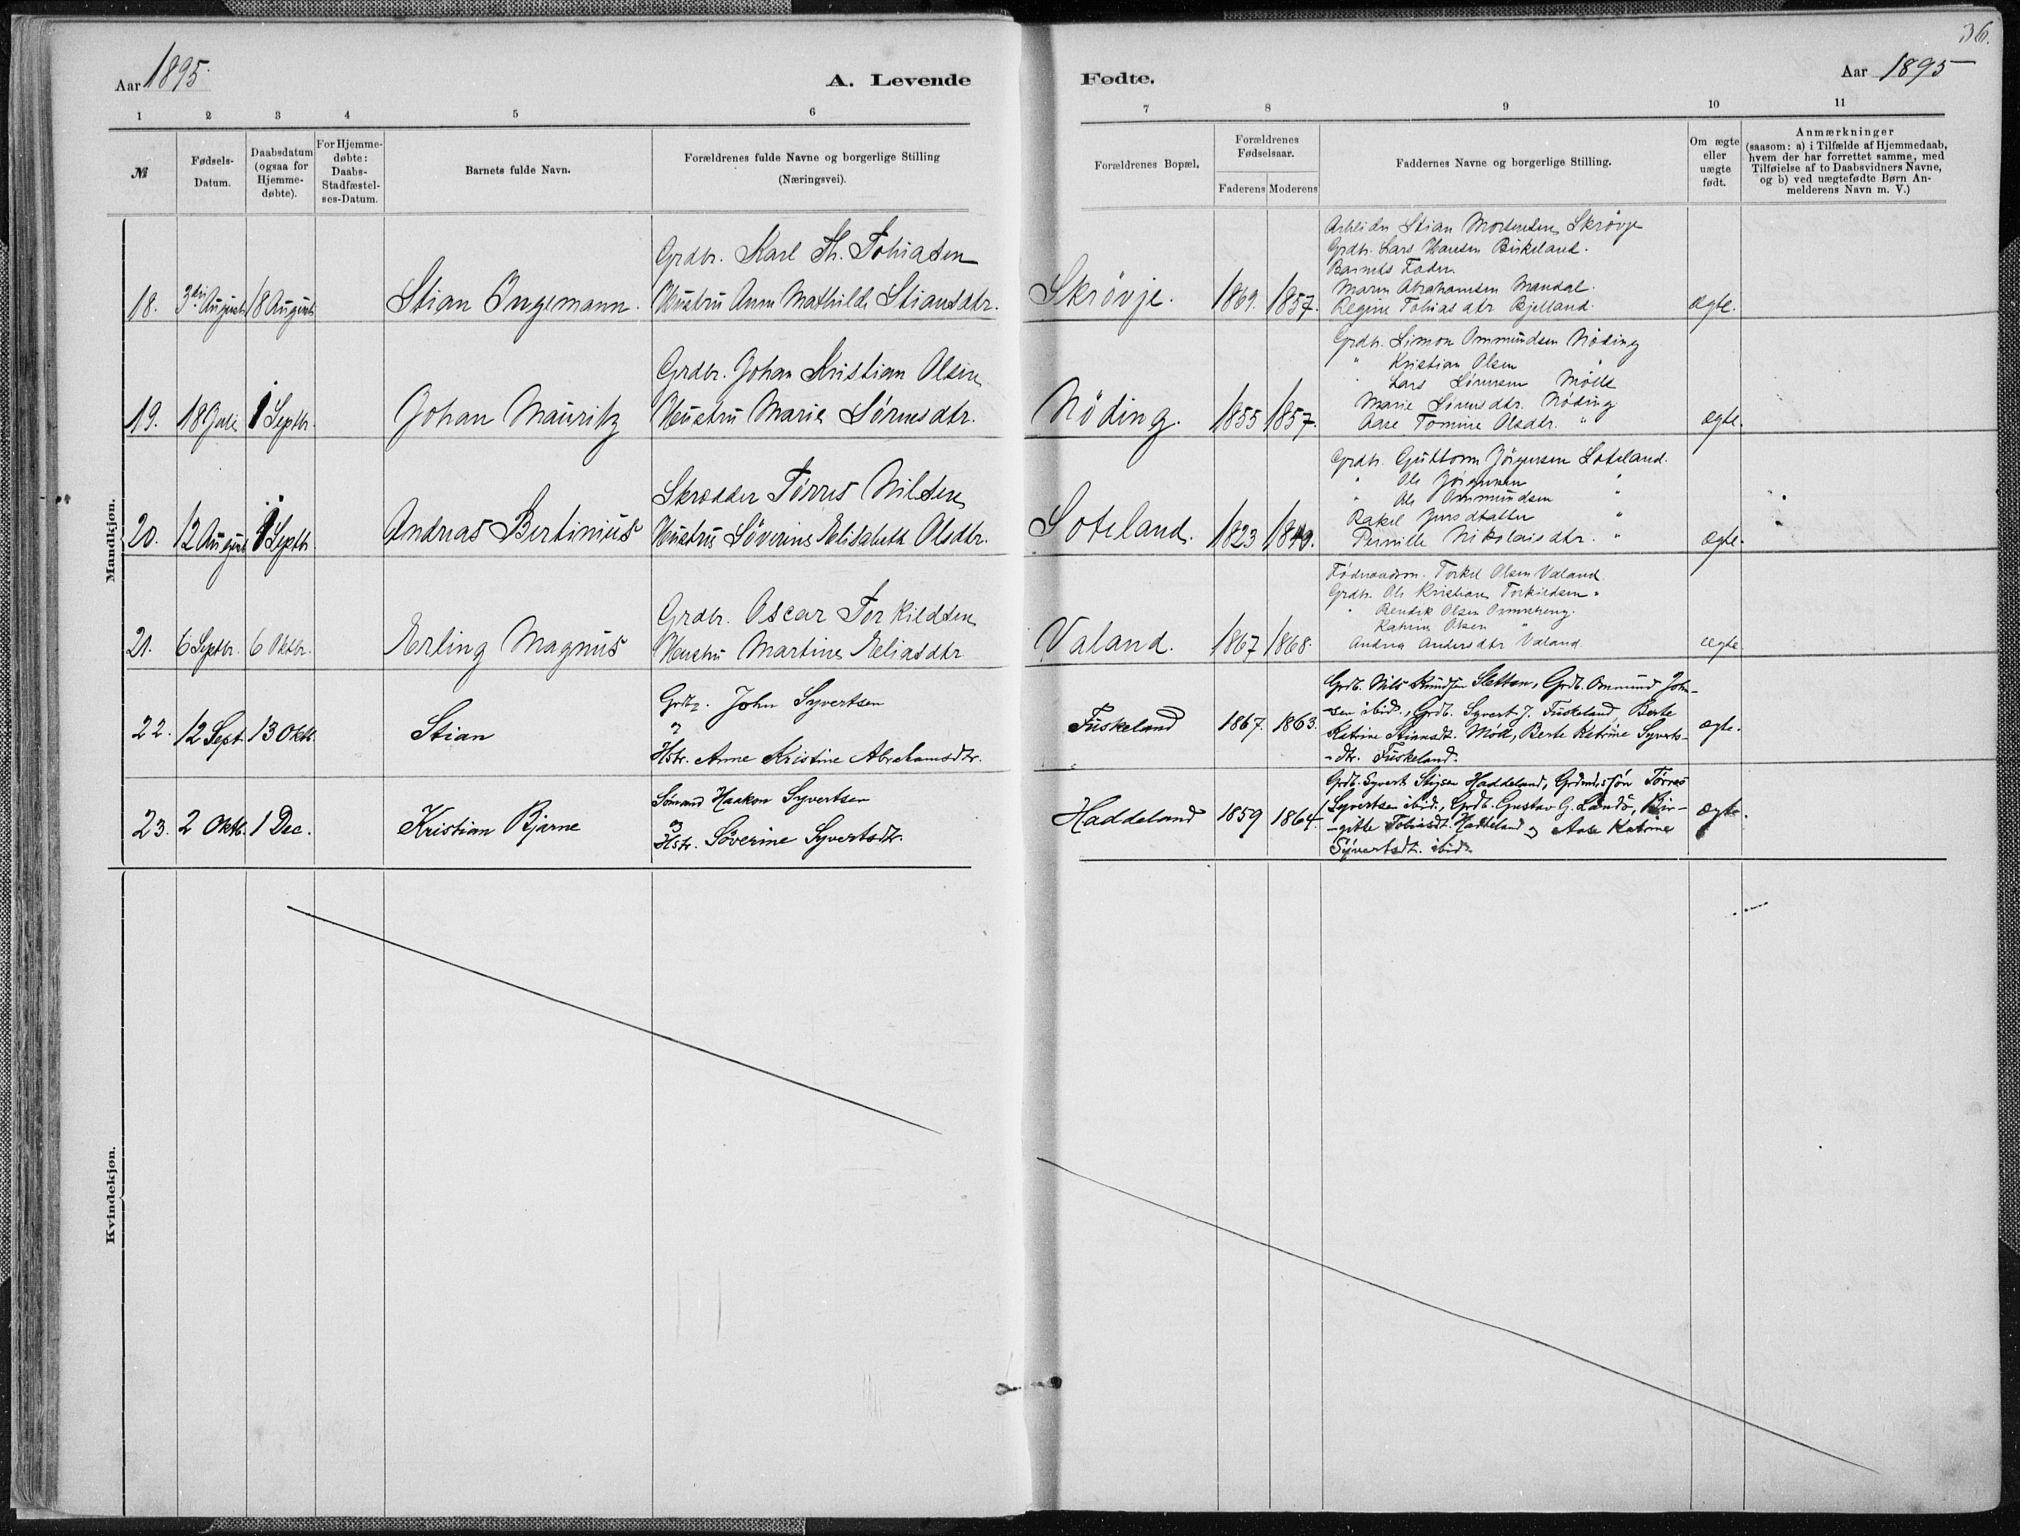 36.
Aar 1895.
A. Levende
Fødte.
Aar 1895
1 2 3 4 5 6 7 8 9 10 11
№
Fødsels-
Datum.
Daabsdatum
(ogsaa for
Hjemme-
døbte).
For Hjemme-
døbte:
Daabs-
Stadfæstel-
ses-Datum.
Barnets fulde Navn.
Forældrenes fulde Navne og borgerlige Stilling
(Næringsvei).
Forældrenes Bopæl.
Forældrenes
Fødselsaar.
Faderens Moderens
Faddernes Navne og borgerlige Stilling.
Om ægte
eller
uægte
født.
Anmærkninger
(saasom: a) i Tilfælde af Hjemmedaab,
hvem der har forrettet samme, med
Tilføielse af to Daabsvidners Navne,
og b) ved uægtefødte Børn An-
melderens Navn m. V.)
Mandkjøn.
18. 3die August 18 August Stian Ingemann.
Grdbr. Karl Th. Tobiasen
Hustru Anna Mathilde Stiansdtr.
Skrøvje. 1869. 1857.
Arbeider Stian Mortensen Skrøvje
Grdbr. Lars Hansen Birkeland.
Barnets Fader
Maren Abrahamsen Mandal.
Regine Tobiasdtr Bjelland.
ægte.
19. 18 Juli 1 Septbr. Johan Mauritz
Grdbr. Johan Kristian Olsen
Hustru Marie Sørensdtr.
Nøding. 1855 1857.
Grdbr. Simon Ommundsen Nøding
" Kristian Olsen "
" Lars Sørensen Mølle
Marie Sørensdtr. Nøding
Aase Tomine Olsdtr. "
ægte.
20. 12 August 1 Septbr. Andreas Bertinius
Skrædder Tørres Nilsen
Hustru Søverine Elisabeth Olsdtr.
Soteland. 1823 1849.
Grdbr. Guttorm Jørgensen Soteland.
" Ole Jørgensen "
" Ole Ommundsen "
Rakel "
Pernille Nikolaisdtr. "
ægte.
21. 6 Septbr. 6 Oktbr. Erling Magnus
Grdbr. Oscar Torkildsen
Hustru Martine Eliasdtr
Valand. 1867 1868.
Føderaadsm. Torkel Olsen Valand
Grdbr. Ole Kristian Torkildsen "
" Bendik Olsen
Katrine Olsen "
Andrea Andersdtr Valand.
ægte
22. 12 Sept. 13 Oktb. Stian
Grdbr. John Syvertsen
og
Hstr. Anne Kristine Abrahamsdtr.
Fuskeland 1867. 1863.
Grdb. Nils Knudsen Sletten, Grdb. Ommund John-
-sen ibid., Grdb. Syvert J. Fuskeland, Berte
Katrine Stiansdt. Møll, Berte Katrine Syverts-
-dtr. Fuskeland.
ægte.
23. 2 Oktb. 1 Dec. Kristian Bjarne
Sømand Haakon Syvertsen
og
Hstr. Søverine Syvertsdtr.
Haddeland 1859 1864.
Grdb. Syvert Haddeland, Tørres
Syvertsen ibid., Grdb. Gustav G. Bir-
-gitte Tobiasdt. Haddeland og Aase Katrine
Syvertsdt. ibid.
ægte.
Kvindekjøn.